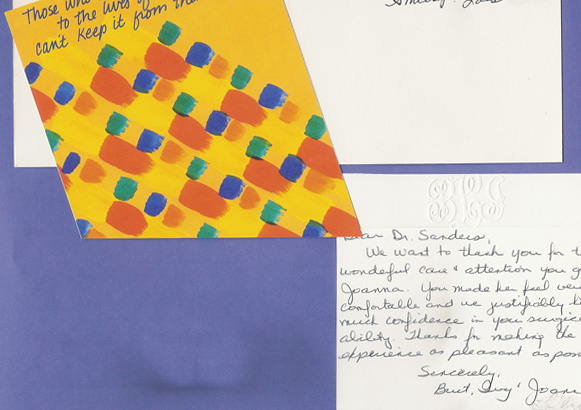 Those who
to the lives of
can't keep it from
Dear Dr. Sanders,
We want to thank you for
wonderful care & attention you
Joanna. You made her feel
comfortable and we justifiably
much confidence in your
ability. Thanks for making the
experience as pleasant as
Sincerely,